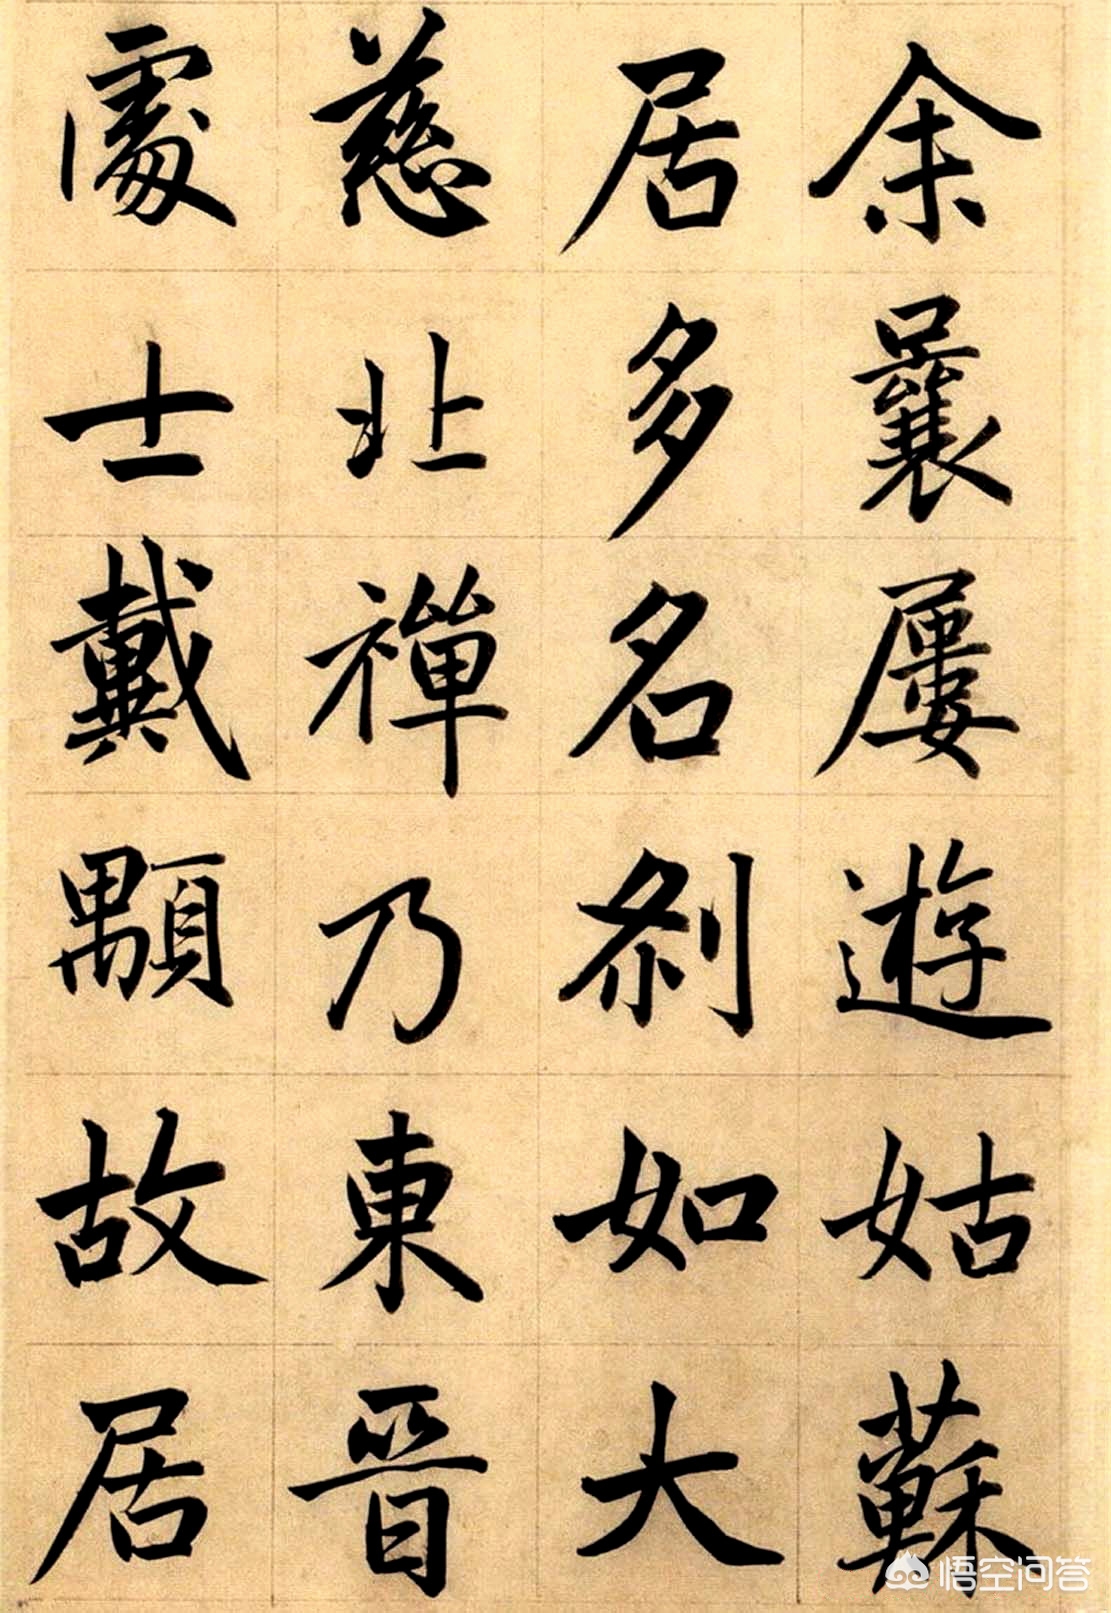 余曩屢遊姑蘇
居多名刹如大
慈北禪乃東晉
處士戴顒故居
悟空问答